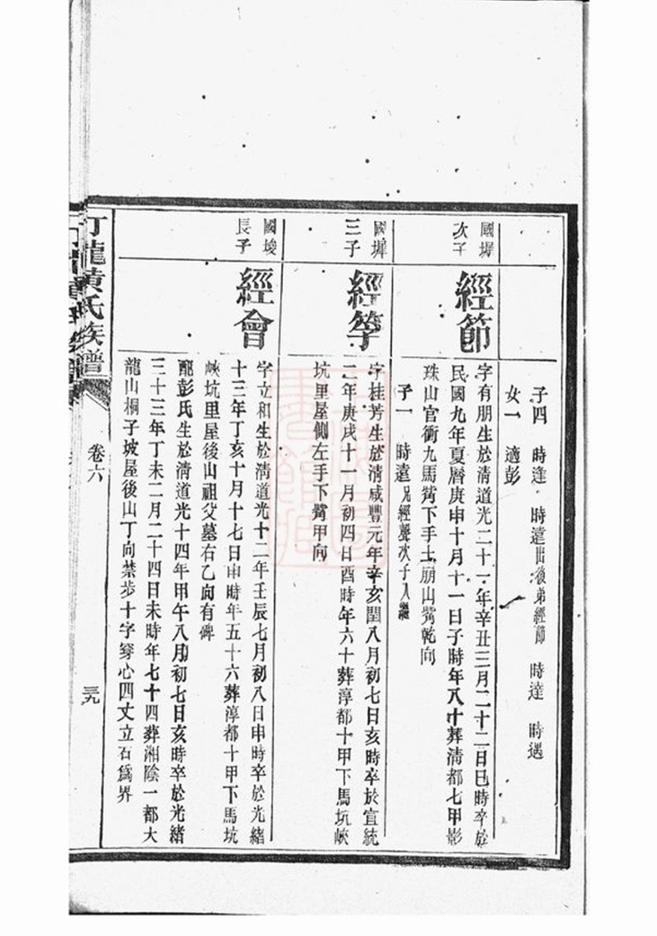 子四 時達 時遠出後弟經節 時達 時遇
女一 適彭
國墀次子
經節
字有朋生於清道光二十一年辛丑三月二十二日巳時卒於
民國九年夏曆庚申十月十一日子時年八十葬清都七甲影
珠山官衝九馬觜下手土崩山觜乾向
子一 時遠兄經聲次子入繼
國墀三子
經筝
字桂芳生於清咸豐元年辛亥閏八月初七日亥時卒於宣統
二年庚戌十一月初四日酉時年六十葬淳都十甲下馬坑峽
坑里屋側左手下觜甲向
國埈長子
經會
字立和生於清道光十二年壬辰七月初八日申時卒於光緒
十三年丁亥十月十七日申時年五十六葬淳都十甲下馬坑
峽坑里屋後山祖父墓右乙向有碑
配彭氏生於清道光十四年甲午八月初七日亥時卒於光緒
三十三年丁未二月二十四日未時年七十四葬湘陰一都大
龍山桐子坡屋後山丁向禁步十字穿心四丈立石為界
龍黃氏族譜
卷六
三九